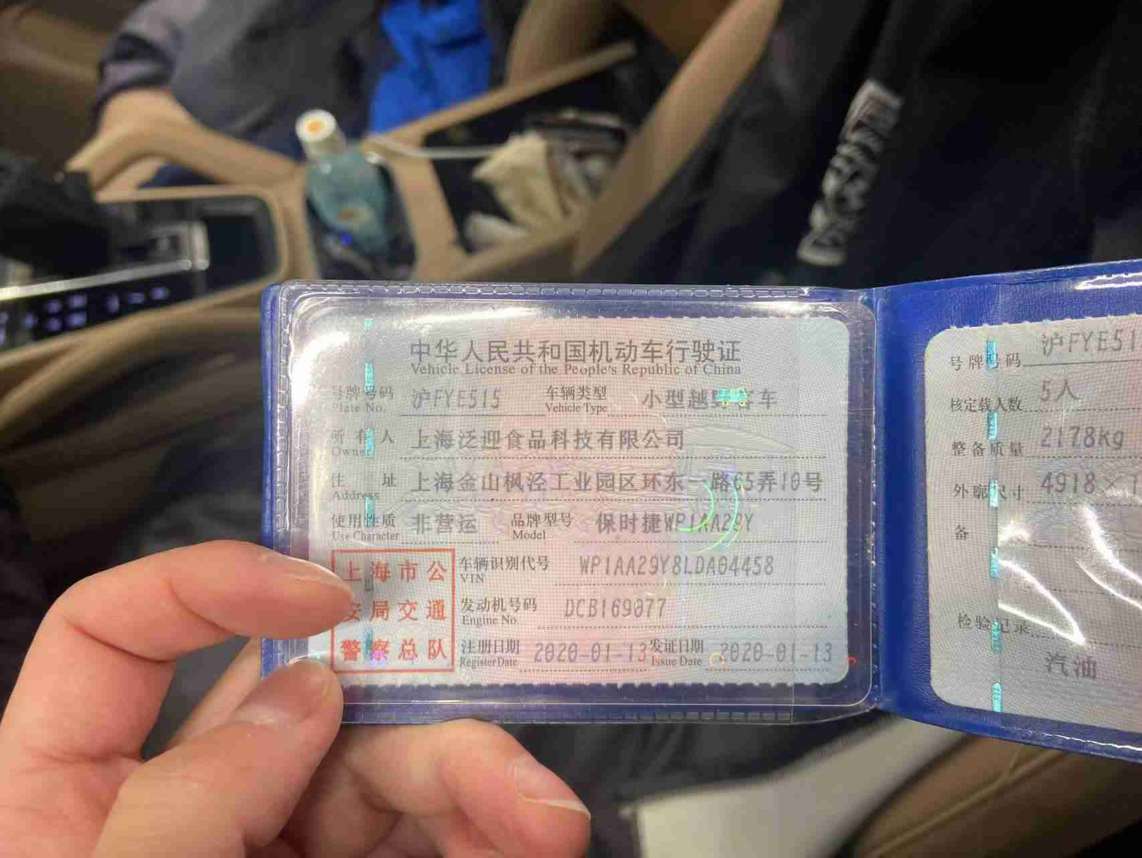 中华人民共和国机动车行驶证
Vehicle License of the People's Republic of China
号牌号码 沪FYE515 车辆类型 小型越野客车
Plate No. Vehicle Type
所有人 上海泛迎食品科技有限公司
Owner
住址 上海金山枫泾工业园区环东一路65弄10号
Address
使用性质 非营运 品牌型号 保时捷WP1AA29Y
Use Character Model
车辆识别代号 WP1AA29Y8LDA04458
VIN
发动机号码 DCB169077
Engine No.
注册日期 2020-01-13 发证日期 2020-01-13
Register Date Issue Date
上海市公
安局交通
警察总队
号牌号码 沪FYE51
核定载人数 5人
整备质量 2178kg
外廓尺寸 4918×1
备
检验记录
汽油